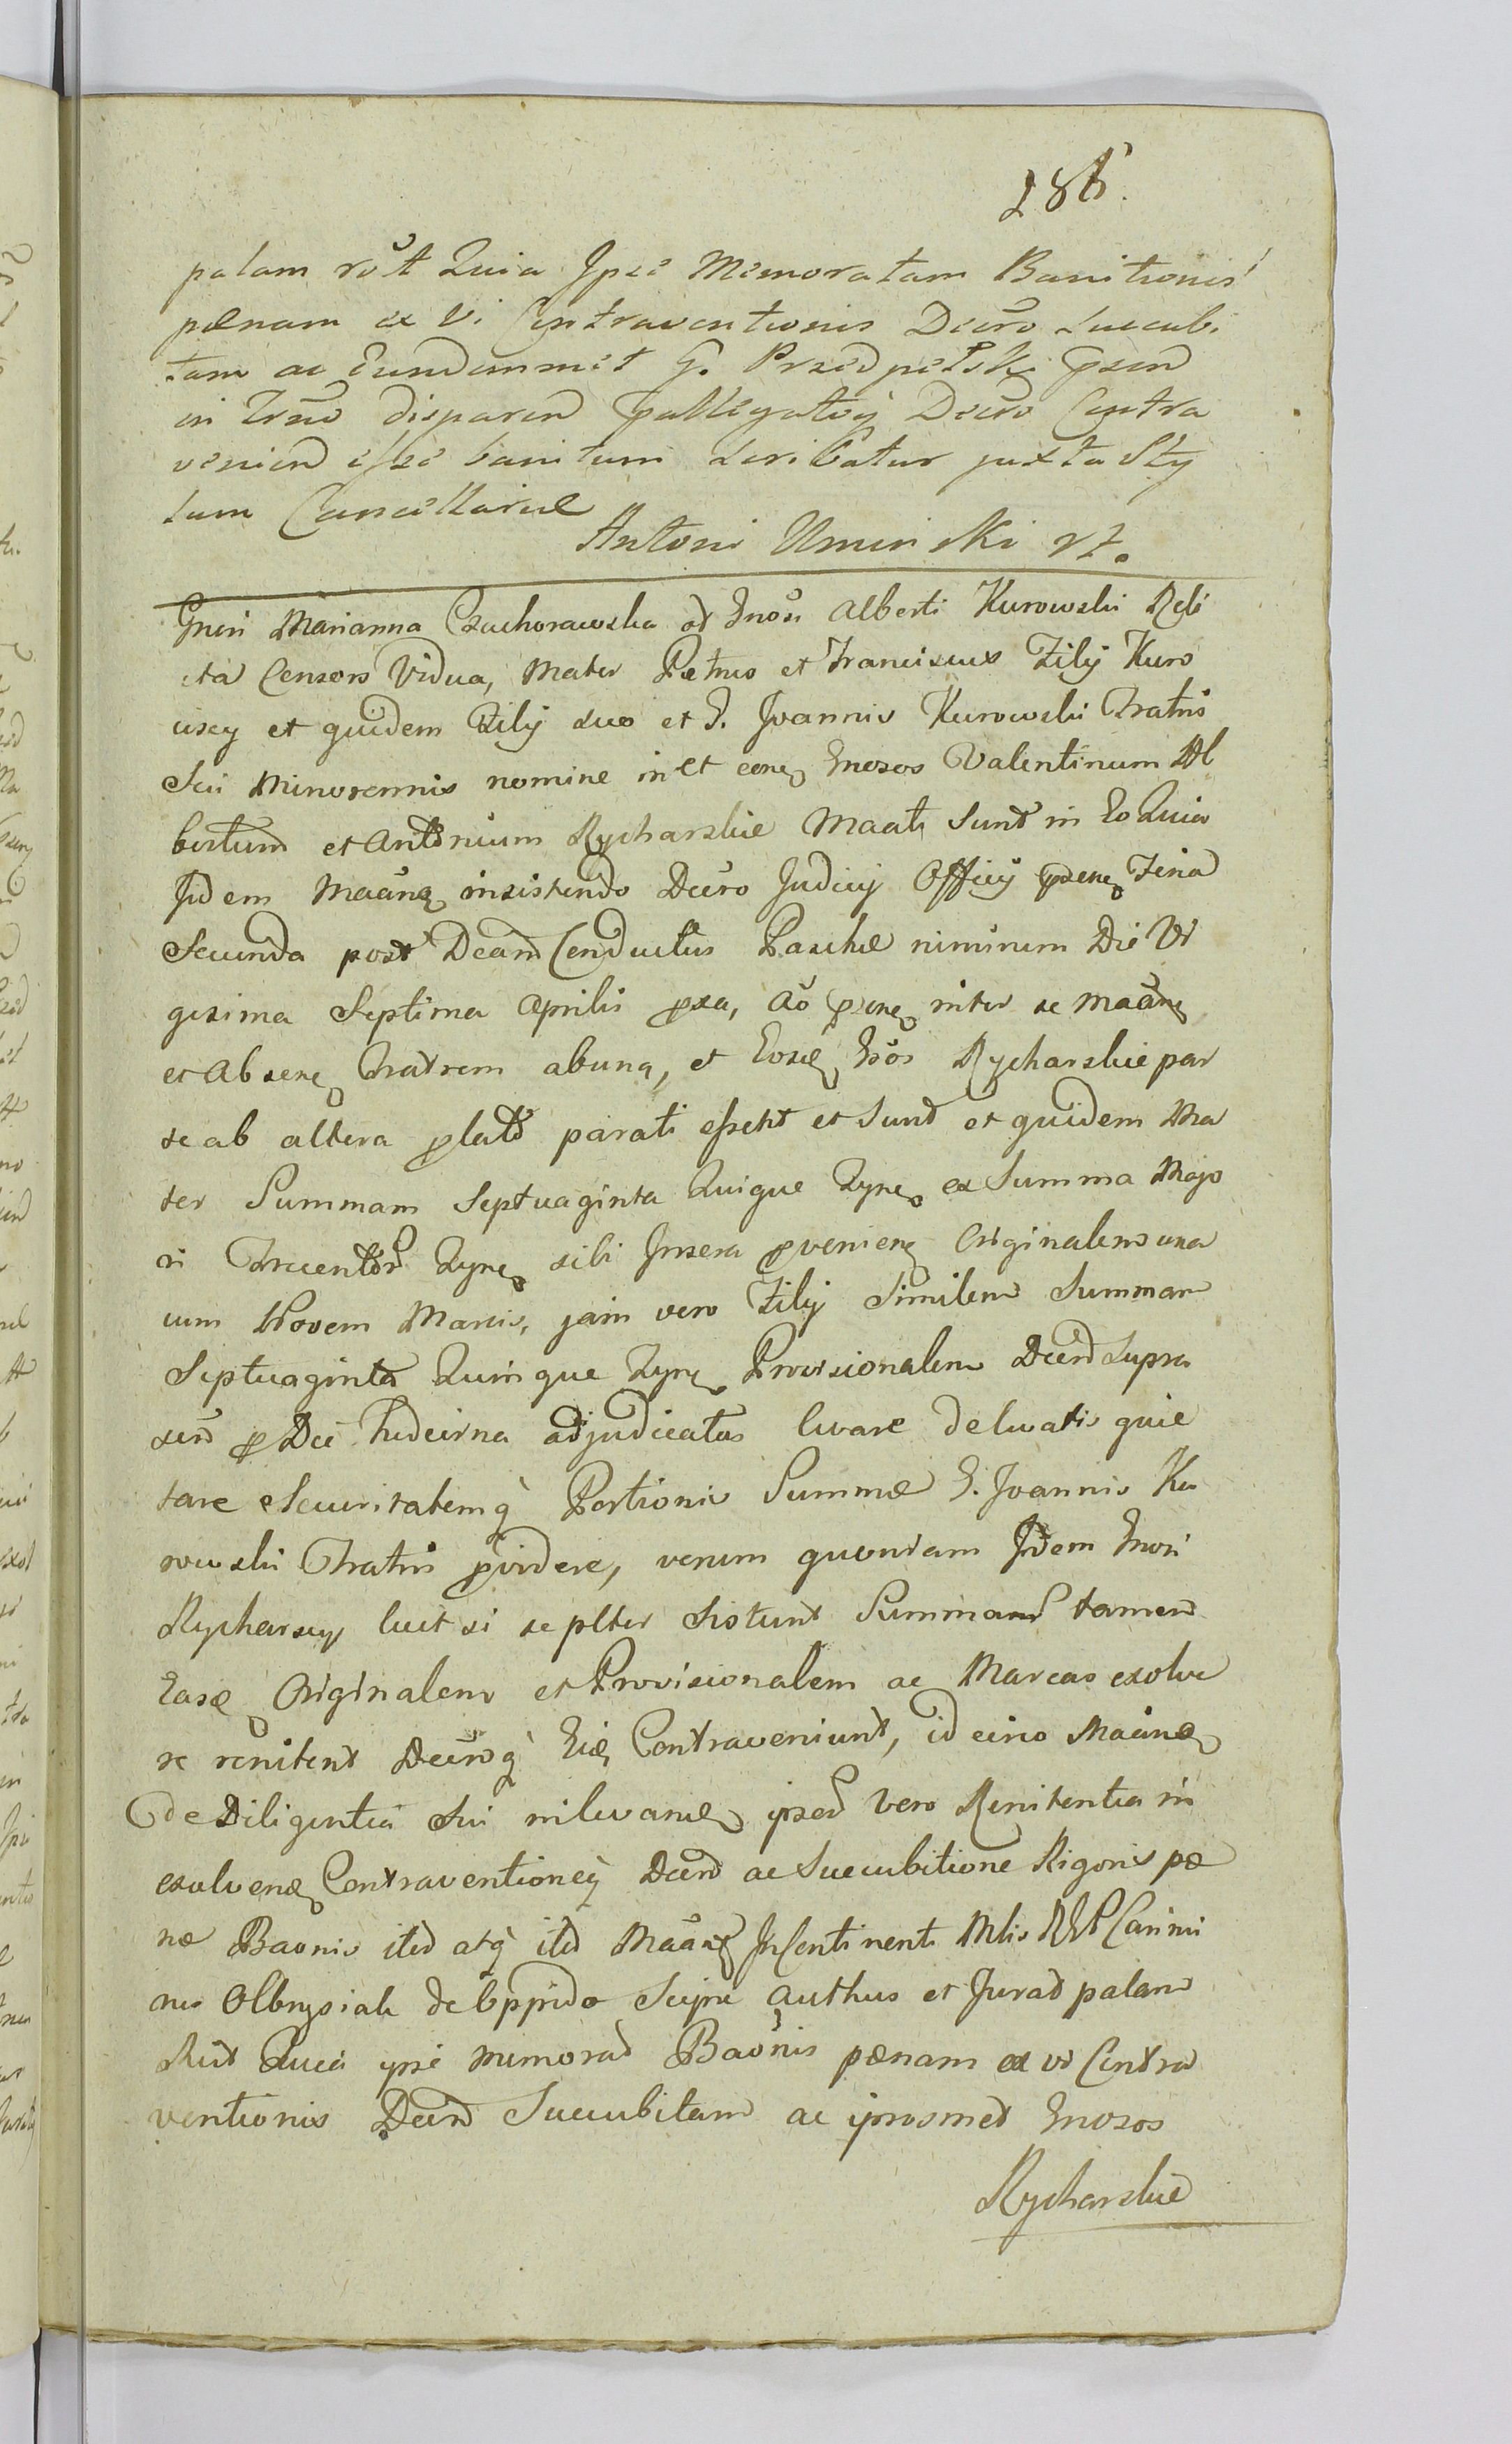 286.
palam rčt Quia Ipse Memoratam Banitionis
pœnam ex Vi Contraventionis Decro succubi
tam ac Eundemmet G. Przedpełski psen
in Trno disparen pallegatoq Decro Contra
venien esse banitum scribatur juxta Sty
lum Cancellariæ
Antoni Uminski vt.
Gnsi Marianna Czachorawska od Gnosi Alberti Kurowski Reli
cta Consors Vidua, Mater Petrus et Franciscus Filij Kuro
wscy et quidem Filij suo et G. Joannis Kurowski Fratris
Sui Minorennis nomine in et cone Gnosos Valentinum Al
bertum et Antonium Rycharskie Maati Sunt in Eo Quia
Iidem Maane insistendo Decro Judicij Officij psene Feria
Secunda post Dcam Conductus Paschæ nimirum Die Vi
gesima Septima Aprilis pxa, Ao psene inter se maane
et Absene Fratrem abuna, et Eosd Gsos Rycharskie par
te ab altera plato parati essent et Sunt et quidem Ma
ter Summam Septuaginta Quique Tyne ex Summa Majo
ri Trecentor Tyne sibi Insera pveniene Originalem una
cum Novem Marcis, jam vero Filij Similem Summam
Septuaginta Quinque Tyne Provisionalem Decro Supra
scro p Die hodierna adjudicatas levare delevatis quie
tare Securitatemq Portionis Summæ G. Joannis Ku
rowski Fratris pvidere, verum quoniam Iidem Gnosi
Rycharscy licet si se plter Sistunt Summam tamen
Easd Originalem et Provisionalem ac Marcas exolve
re renitent Decroq Eid Contraveniunt, id circo Maane
de Diligentia Sui in levand ipsor vero Renitentia in
exolvend Contraventioneq Decro ac Succubitione Rigoris pœ
næ Baonis ited atq ited Maane In Continenti Mlis RGP Casimi
rus Olbrysiak de Oppido Scipri authus et Jurad palam
Rcit Quia ipse memorad Baonis pœnam ex vi Contra
ventionis Decro Succubitam ac ipsosmed Gnosos
Rycharskie